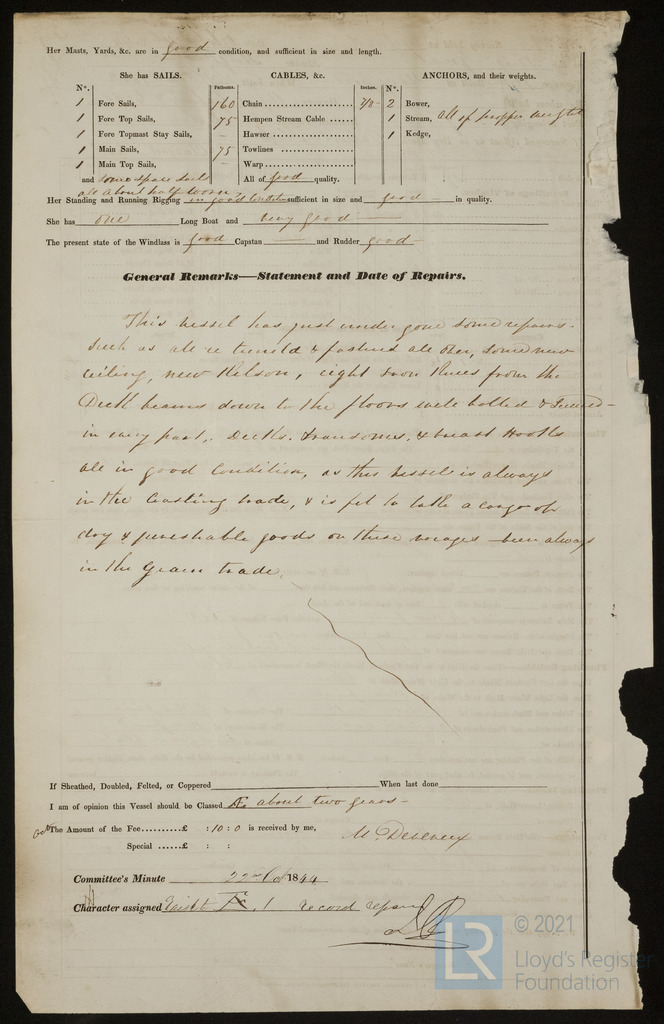 Her Masts, Yards, &c. are in good condition, and sufficient in size and length.
She has SAILS. CABLES, &c. ANCHORS, and their weights.
N°. Fathoms. Inches. N°.
1 Fore Sails, 160 Chain 7/8 2 Bower,
1 Fore Top Sails, 75 Hempen Stream Cable 1 Stream, all of proper weight
1 Fore Topmast Stay Sails, Hawser 1 Kedge,
1 Main Sails, 75 Towlines
1 Main Top Sails, Warp
and some spare sails All of good quality.
all about half worn
Her Standing and Running Rigging in good Condition sufficient in size and good in quality.
She has one Long Boat and very good
The present state of the Windlass is good Capstan and Rudder good
General Remarks—Statement and Date of Repairs.
This vessel has just under gone some repairs.
such as all re & fastned all over, some new
ceiling, new Kelson, eight Iron Knees from the
Deck beams down to the floors well bolted & Secured
in every part, Decks, transomes, & breast Hooks
all in good Condition, as this vessel is always
in the Coasting trade, & is fit to take a cargo of
dry & perishable goods on these voyages been always
in the Grain trade.
If Sheathed, Doubled, Felted, or Coppered When last done
I am of opinion this Vessel should be Classed Æ about two years
The Amount of the Fee £ : 10 : 0 is received by me,
Special £ : : M. Devereux
Committee's Minute 22nd Oct 1844
Character assigned Æ. 1 record repairs
LR
© 2021
Lloyd's Register
Foundation